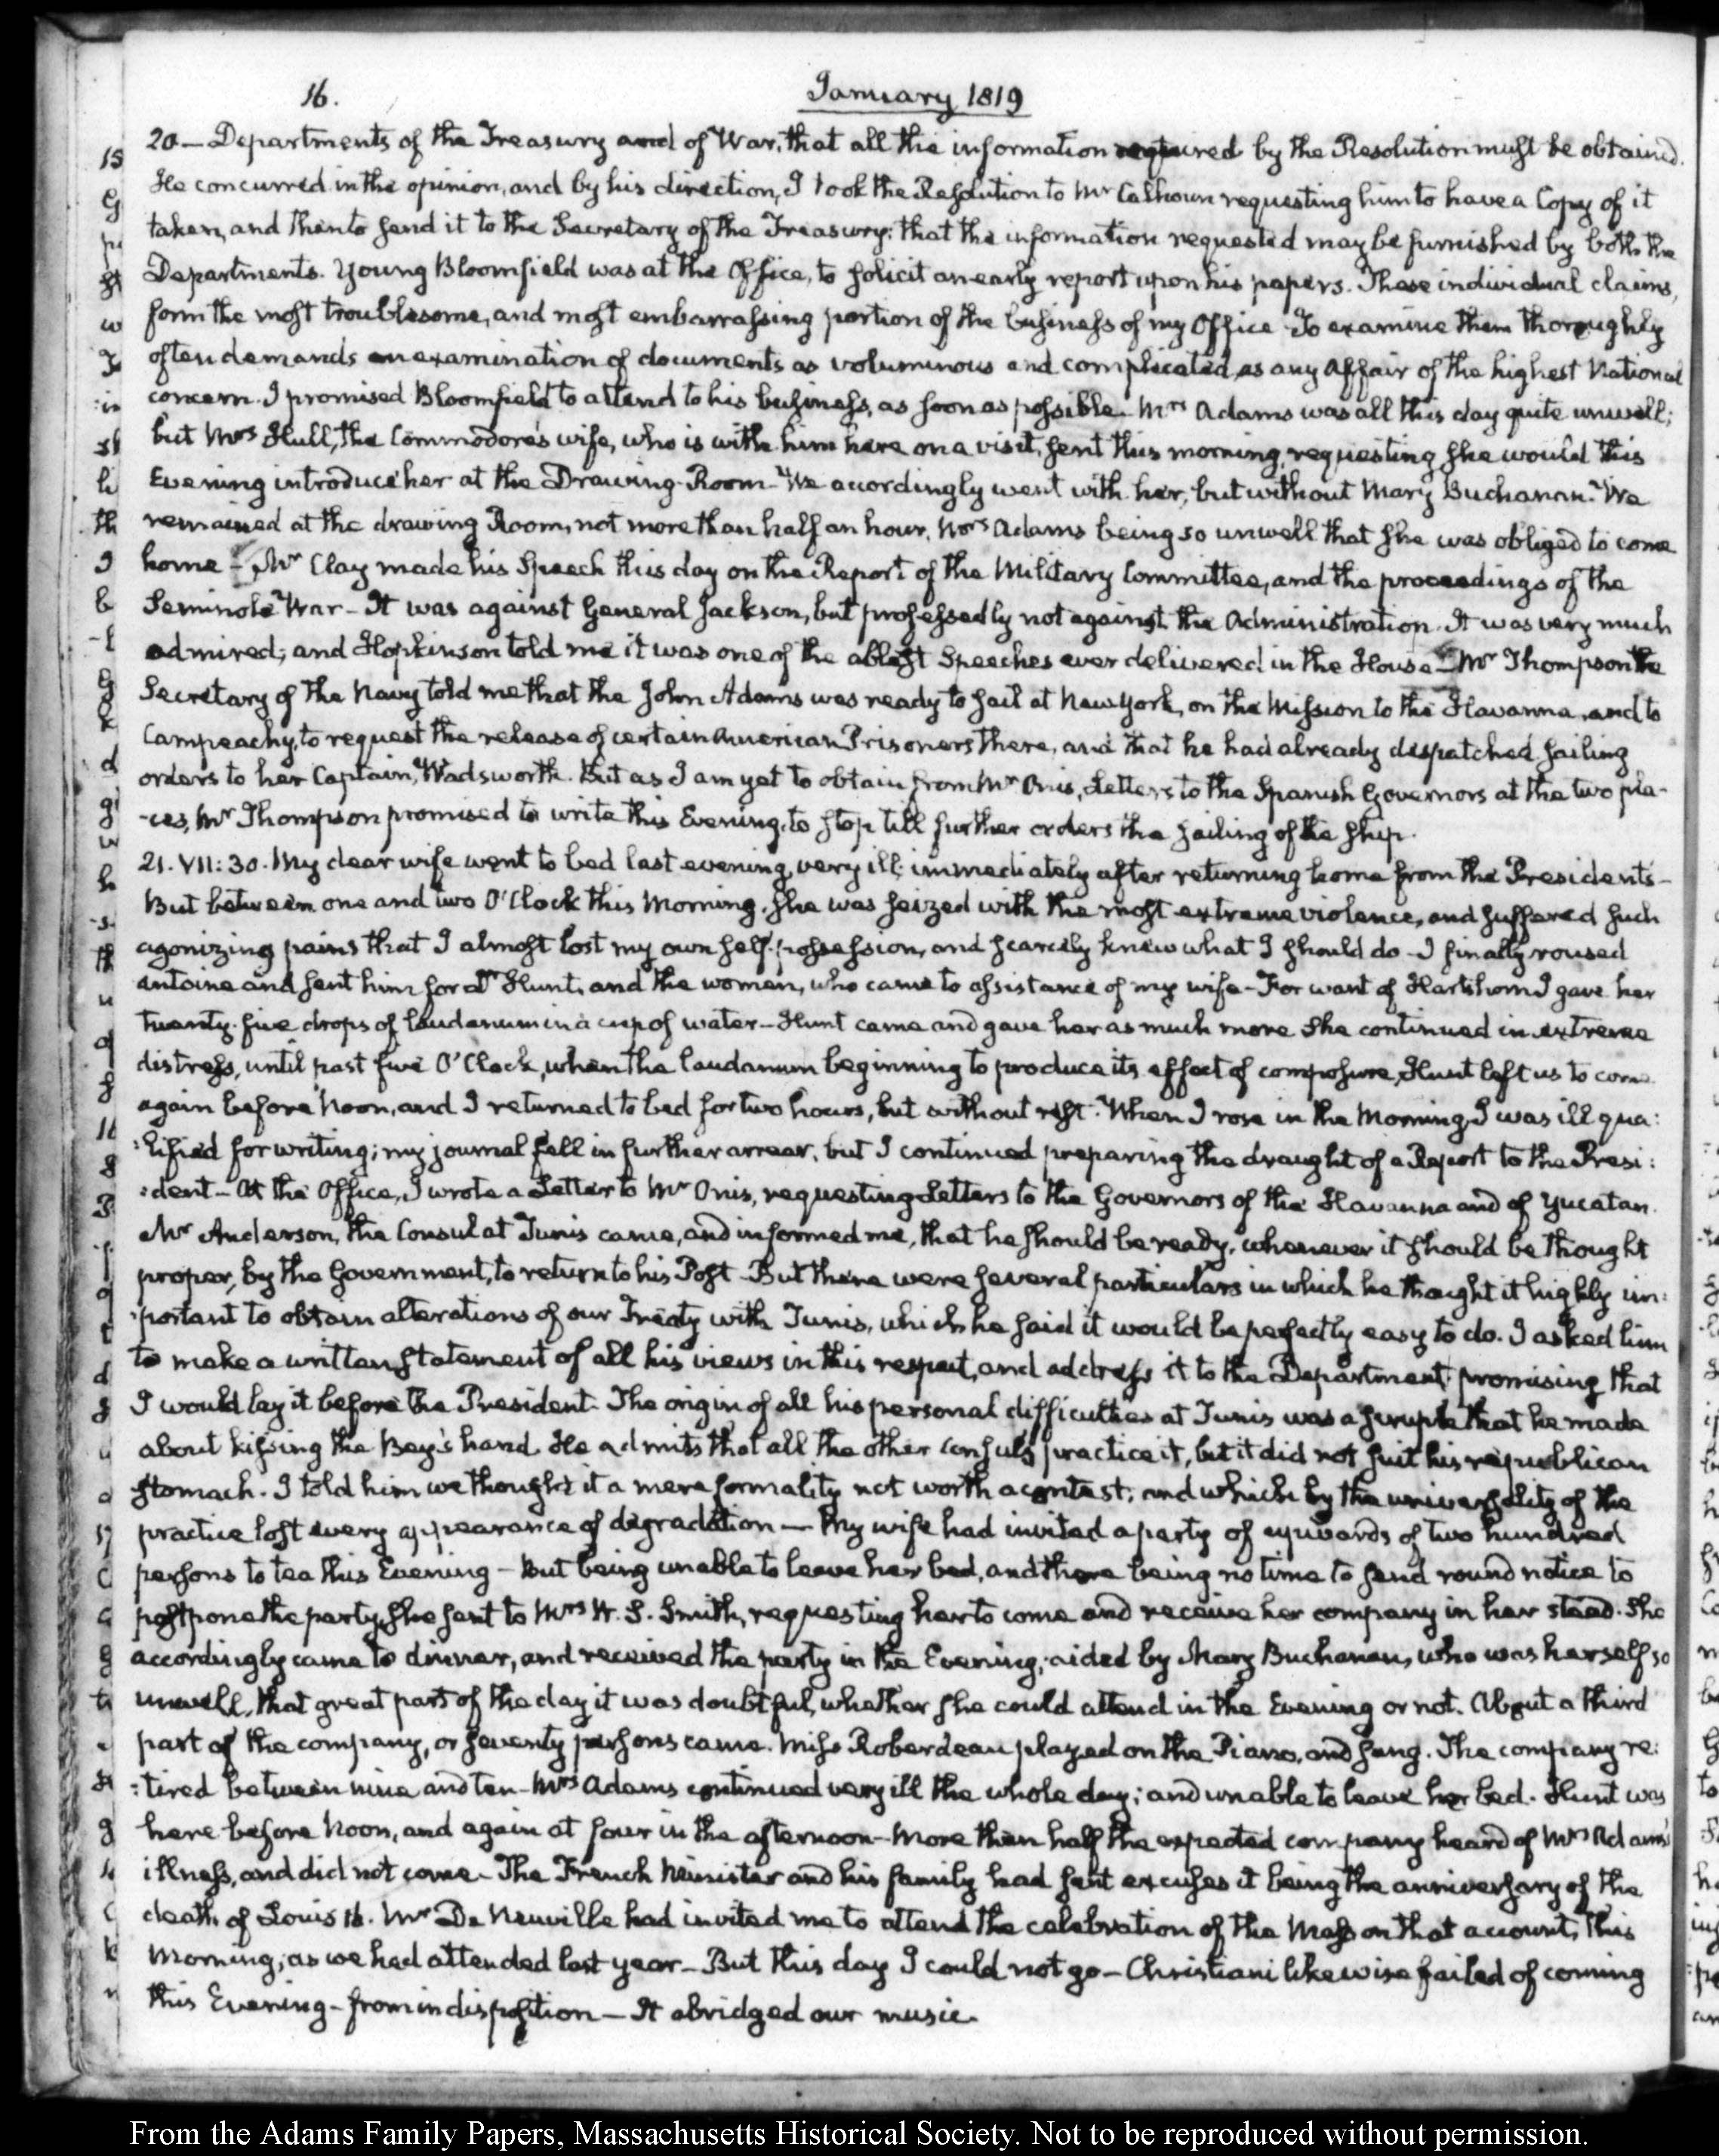 16. January 1819
20 — Departments of the Treasury and of War, that all the information required by the Resolution must be obtained.
He concurred in the opinion, and by his direction, I took the Resolution to Mr Calhoun requesting him to have a Copy of it
taken, and then to send it to the Secretary of the Treasury: that the information requested may be furnished by both the
Departments. Young Bloomfield was at the Office, to solicit an early report upon his papers. These individual claims,
form the most troublesome, and most embarrassing portion of the business of my Office. To examine them thoroughly
often demands an examination of documents as voluminous and complicated, as any Affair of the highest National
concern. I promised Bloomfield to attend to his business, as soon as possible. Mrs Adams was all this day quite unwell;
but Mrs Hull, the Commodore's wife, who is with him here on a visit, sent this morning, requesting she would this
Evening introduce her at the Drawing-Room — We accordingly went with her, but without Mary Buchanan. We
remained at the drawing Room, not more than half an hour, Mrs Adams being so unwell that she was obliged to come
home — Mr Clay made his Speech this day on the Report of the Military Committee, and the proceedings of the
Seminole War — It was against General Jackson, but professedly not against the Administration. It was very much
admired; and Hopkinson told me it was one of the ablest Speeches ever delivered in the House — Mr Thompson the
Secretary of the Navy told me that the John Adams was ready to sail at New York, on the Mission to the Havanna, and to
Campeachy, to request the release of certain American Prisoners there, and that he had already despatched sailing
orders to her Captain, Wadsworth. But as I am yet to obtain from Mr Onis, Letters to the Spanish Governors at the two pla-
-ces, Mr Thompson promised to write this Evening, to stop till further orders the sailing of the ship.
21. VII: 30. My dear wife went to bed last evening, very ill; immediately after returning home from the Presidents —
But between one and two O'Clock this Morning, she was seized with the most extreme violence, and suffered such
agonizing pains that I almost lost my own self-possession, and scarcely knew what I should do — I finally roused
Antoine and sent him for Dr Hunt, and the women, who came to assistance of my wife — For want of Hartshorn I gave her
twenty-five drops of laudanum in a cup of water — Hunt came and gave her as much more. She continued in extreme
distress, until past five O'Clock, when the laudanum beginning to produce its effect of composure, Hunt left us to come
again before Noon, and I returned to bed for two hours, but without rest. When I rose in the Morning, I was ill qua:
:lified for writing; my journal fell in further arrear, but I continued preparing the draught of a Report to the Presi:
:dent — At the Office, I wrote a Letter to Mr Onis, requesting Letters to the Governors of the Havanna and of Yucatan.
Mr Anderson, the Consul at Tunis came, and informed me, that he should be ready, whenever it should be thought
proper, by the Government, to return to his Post — But there were several particulars in which he thought it highly im:
:portant to obtain alterations of our Treaty with Tunis, which he said it would be perfectly easy to do. I asked him
to make a written statement of all his views in this respect, and address it to the Department; promising that
I would lay it before the President. The origin of all his personal difficulties at Tunis was a scruple that he made
about kissing the Bey's hand. He admits that all the other Consuls practice it, but it did not suit his republican
stomach. I told him we thought it a mere formality not worth a contest; and which by the universality of the
practice lost every appearance of degradation — My wife had invited a party of upwards of two hundred
persons to tea this Evening — But being unable to leave her bed, and there being no time to send round notice to
postpone the party, she sent to Mrs W. S. Smith, requesting her to come and receive her company in her stead. She
accordingly came to dinner, and received the party in the Evening; aided by Mary Buchanan, who was herself so
unwell, that great part of the day it was doubtful, whether she could attend in the Evening or not. About a third
part of the company, or seventy persons came. Miss Roberdeau played on the Piano, and sang. The company re:
:tired between nine and ten — Mrs Adams continued very ill the whole day; and unable to leave her bed. Hunt was
here before Noon, and again at four in the afternoon — More than half the expected company heard of Mrs Adams's
illness, and did not come — The French Minister and his family had sent excuses it being the anniversary of the
death of Louis 16. Mr De Neuville had invited me to attend the celebration of the Mass on that account, this
Morning; as we had attended last year — But this day I could not go — Christiani likewise failed of coming
this Evening — from indisposition — It abridged our music.
From the Adams Family Papers, Massachusetts Historical Society. Not to be reproduced without permission.